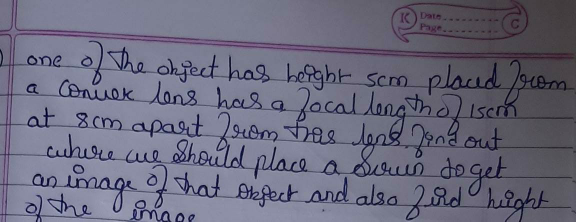 K Date
Page C
one of the object has height 5cm placed from
a convex lens has a focal length of 15cm
at 8cm apart from this lens. find out
where we should place a screen to get
an image of that object and also find height
of the image